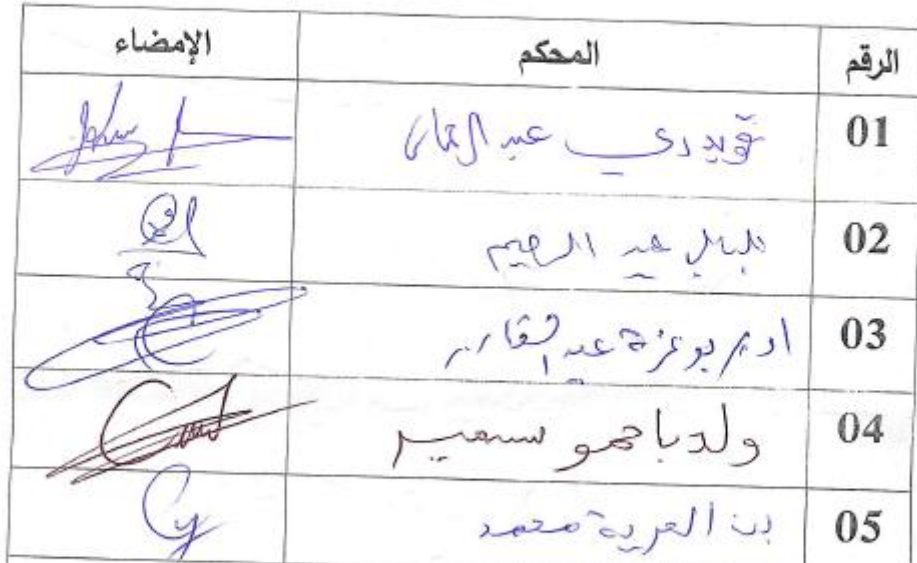 الرقم المحكم الإمضاء
01 قويدري عبد
02 عبد الرحيم
03 بوعزة عبد القادر
04 ولد باحمو سمير
05 بن العربية محمد